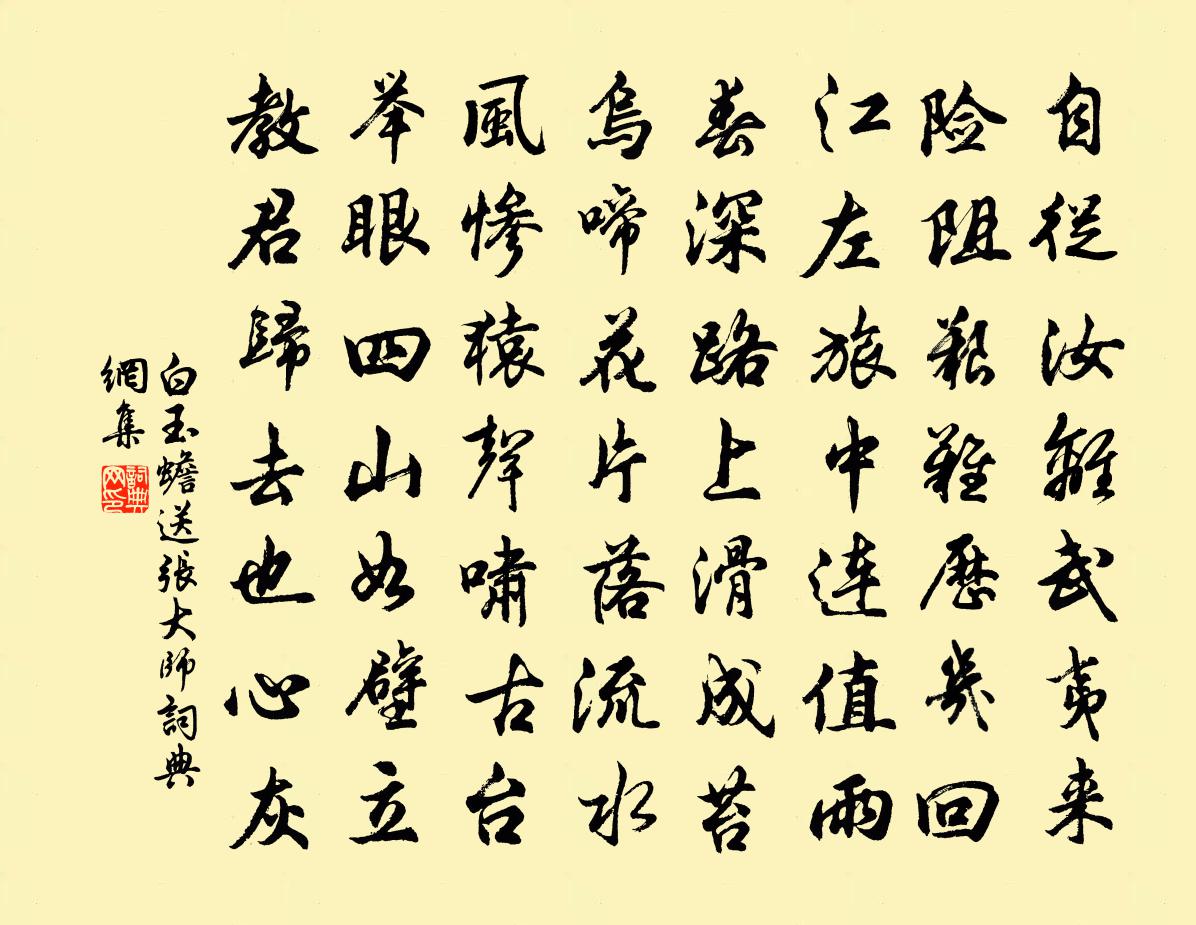 自從汝離武夷来
险阻艱難歷幾回
江左旅中连值雨
春深路上滑成苔
烏啼花片落流水
風慘猿聲嘯古台
举眼四山如壁立
教君歸去也心灰
白玉蟾送張大師詞典
網集
詞典
网印